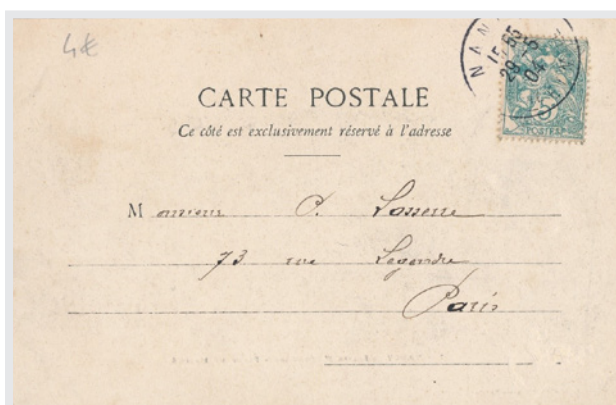 4€
NAN
15 65
29 -5
04
5
POSTES
CARTE POSTALE
Ce côté est exclusivement réservé à l'adresse
Monsieur P. Lasserre
73 rue Legendre
Paris